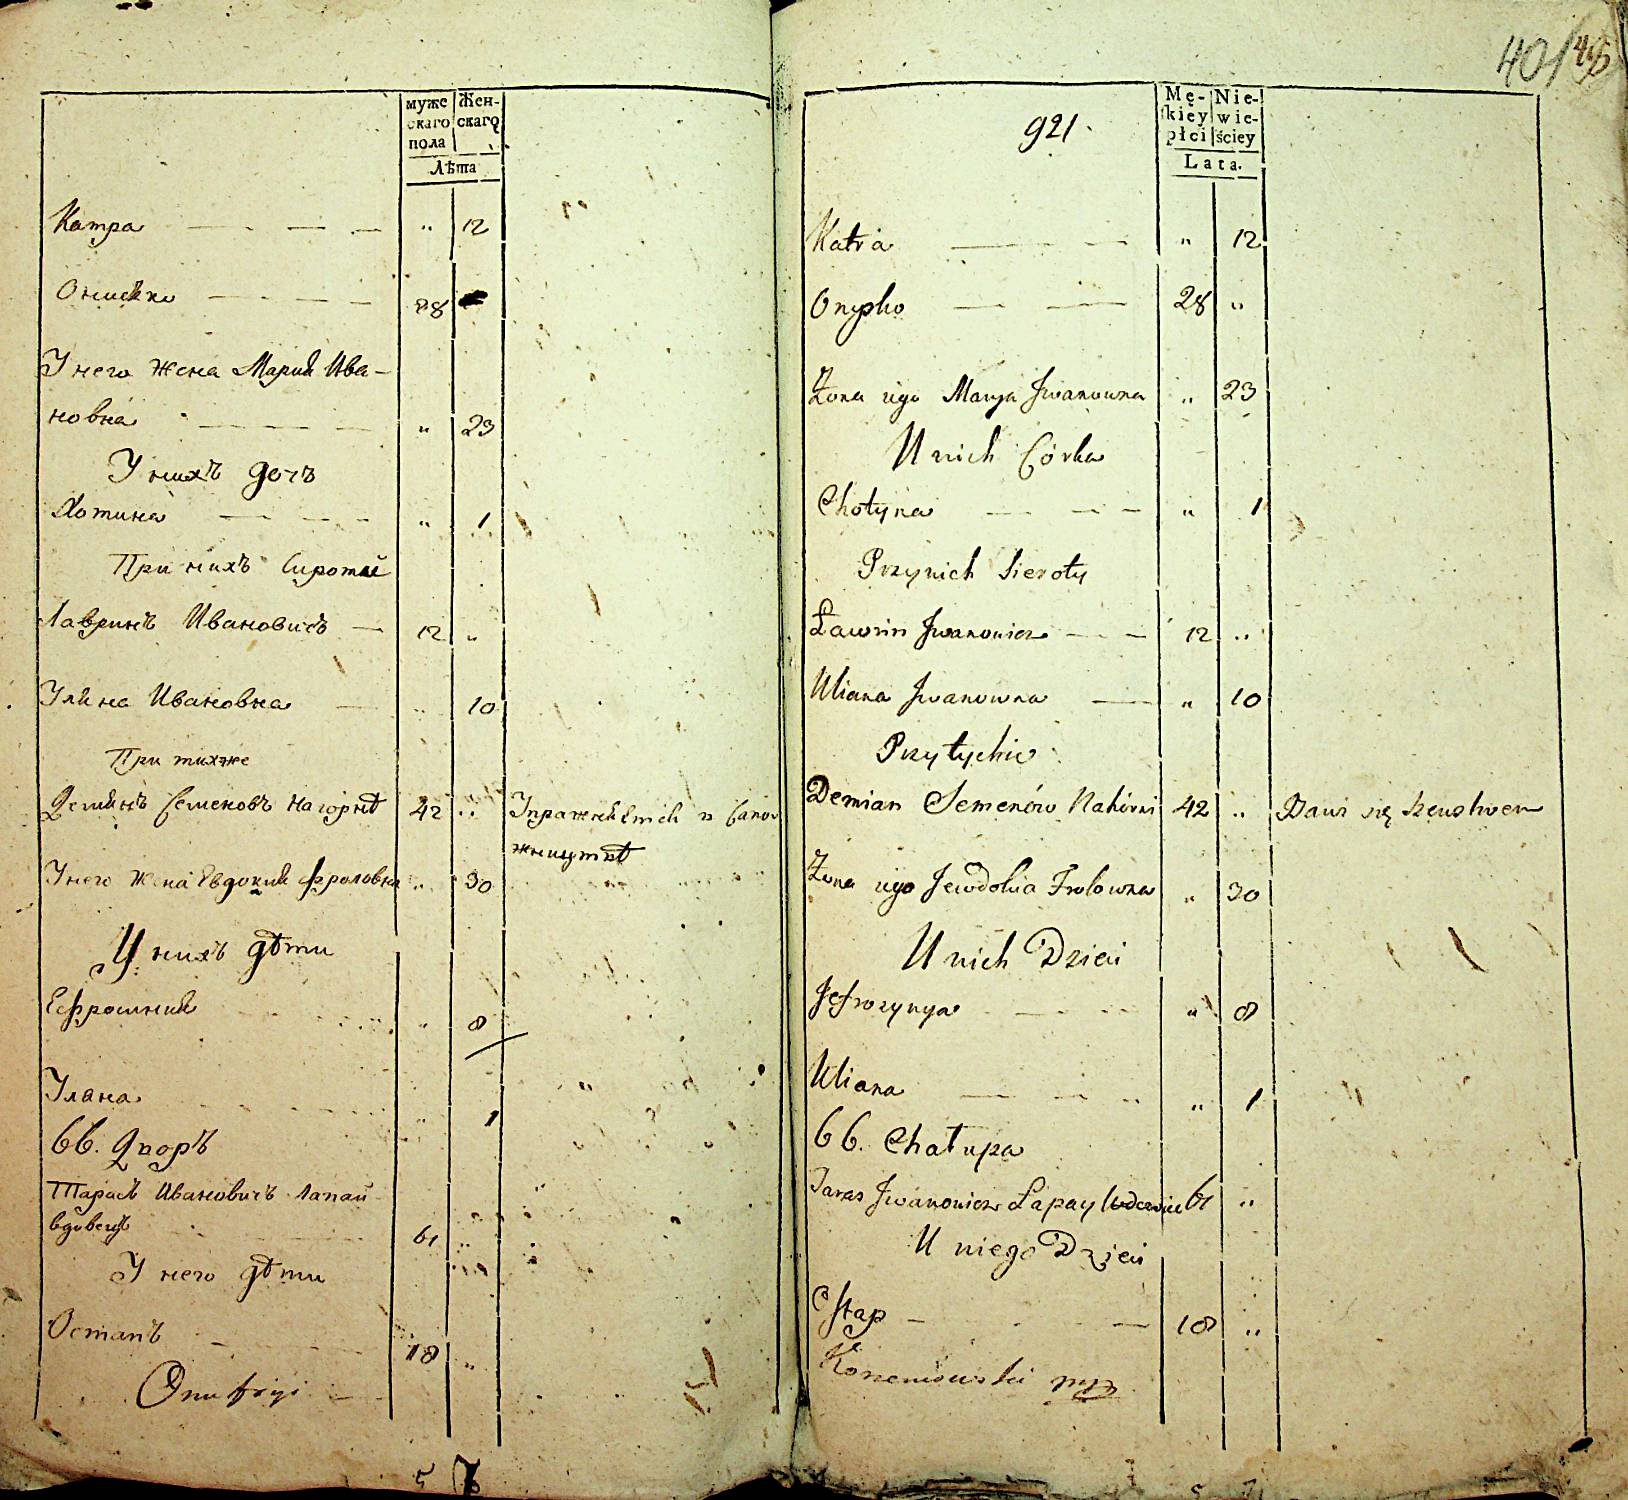 муже
скаго
пола
Жен-
скаго
Лѣта
Катра " 12
Онисько 28
У него жена Мария Ива-
новна " 23
У нихъ дочъ
Хотина " 1
При нихъ сироты
Лавринъ Ивановичъ 12 "
Уляна Ивановна " 10
При тихже
Демянъ Семеновъ Нагорнѣ 42 "
У него жена Евдокия Фроловна " 30
У нихъ дѣти
Ефросиния " 8
Уляна " 1
66. Дворъ
Тарасъ Ивановичъ Лапай
вдовецъ 61 "
У него дѣти
Остапъ 18 "
Onufryi
5 7
40/
921.
Mę-
skiey
płci
Nie-
wie-
ściey
Lata.
Katra " 12
Onysko 28 "
Żona iego Marya Jwanowna " 23
U nich Córka
Chotyna " 1
Przynich Sieroty
Ławrin Jwanowicz 12 "
Uliana Jwanowna " 10
Przytychże
Demian Semenów Nahórni 42 "
Żona iego Jewdokia Frolowna " 30
U nich Dzieci
Jefrozynya " 8
Uliana " 1
66. Chałupa
Taras Jwanowicz Łapay Wdowiec 61 "
U niego Dzieci
Ostap 18 "
5 7